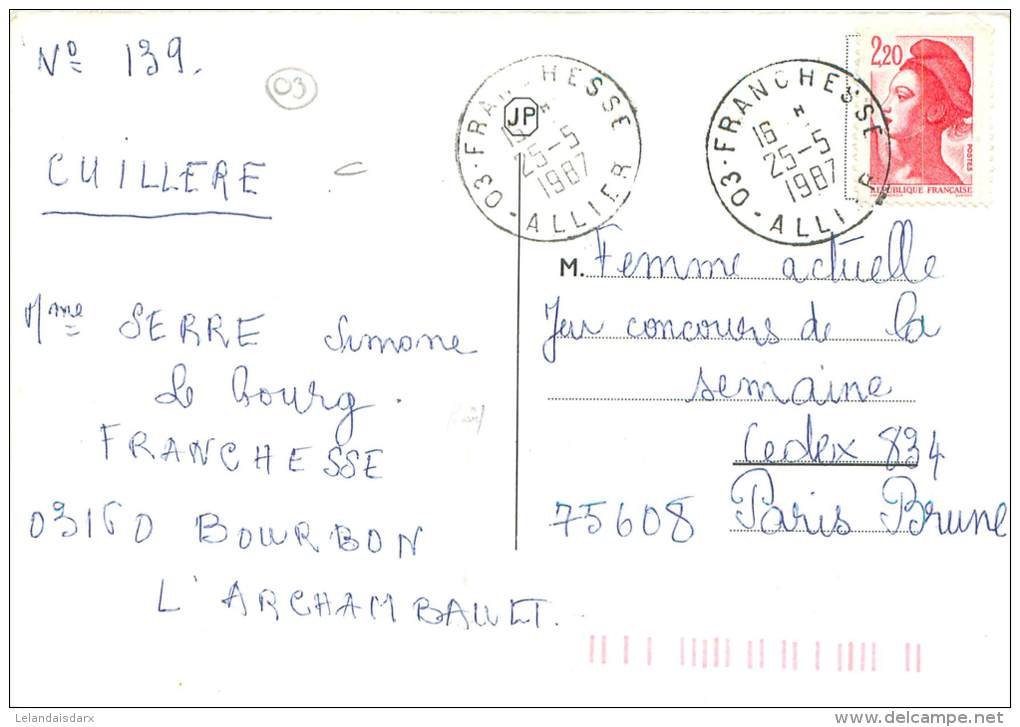 Nº 139.
03
CUILLERE
C
Mme SERRE Simone
Le bourg.
FRANCHESSE
03160 BOURBON
L'ARCHAMBAULT.
03 · FRANCHESSE
JP
25-5
1987
- ALLIER
03 · FRANCHESSE
16 H
25-5
1987
- ALLIER
2,20
POSTES
REPUBLIQUE FRANÇAISE
M. Femme actuelle
Jeu concours de la
semaine
Cedex 834
75608 Paris Brune
Lelandaisdarx
www.delcampe.net